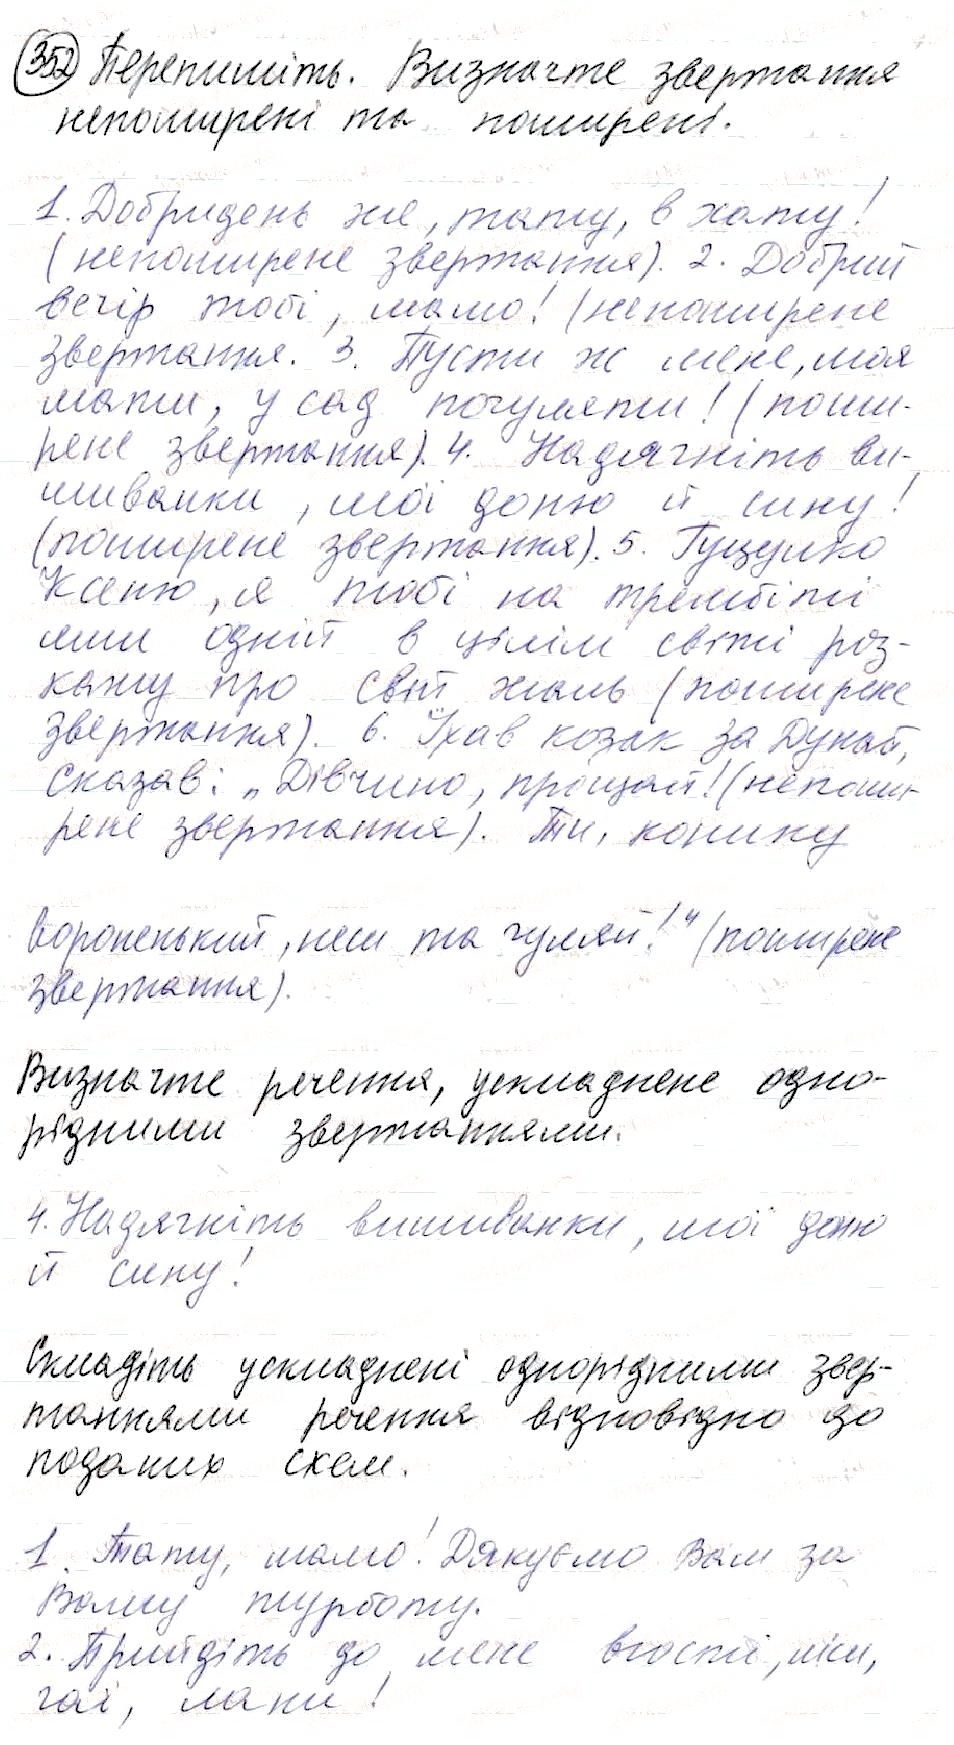 352 Перепишіть. Визначте звертання
непоширені та поширені.
1. Добридень же, тату, в хату!
(непоширене звертання). 2. Добрий
вечір тобі, мамо! (непоширене
звертання. 3. Пусти ж мене, моя
мати, у сад погуляти! (поши-
рене звертання). 4. Надягніть ви-
шиванки, мої доню й сину!
(поширене звертання). 5. Гуцулко
Ксеню, я тобі на трембіті
лиш одній в цілім світі роз-
кажу про свій жаль (поширене
звертання). 6. Їхав козак за Дунай,
сказав: „Дівчино, прощай! (непоши-
рене звертання). Ти, конику
вороненький, неси та гуляй!" (поширене
звертання).
Визначте речення, ускладнене одно-
рідними звертаннями.
4. Надягніть вишиванки, мої доню
й сину!
Складіть ускладнені однорідними звер-
таннями речення відповідно до
поданих схем.
1. Тату, мамо! Дякуємо Вам за
Вашу турботу.
2. Прийдіть до мене вгості, ліси,
гаї, лани!